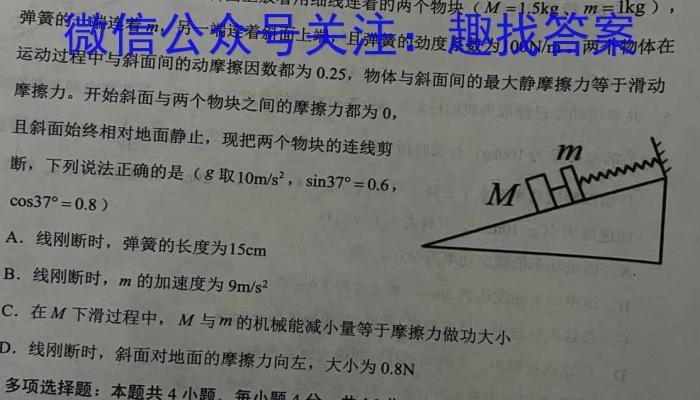 用细线连着的两个物块（M=1.5kg，m=1kg），
弹簧的一端连着m，另一端连着斜面上端，且弹簧的劲度系数为100N/m，两个物体在
微信公众号关注：趣找答案
运动过程中与斜面间的动摩擦因数都为0.25，物体与斜面间的最大静摩擦力等于滑动
摩擦力。开始斜面与两个物块之间的摩擦力都为0，
且斜面始终相对地面静止，现把两个物块的连线剪
断，下列说法正确的是（g取10m/s²，sin37°=0.6，
cos37°=0.8）
m
M
A．线刚断时，弹簧的长度为15cm
B．线刚断时，m的加速度为9m/s²
C．在M下滑过程中，M与m的机械能减小量等于摩擦力做功大小
D．线刚断时，斜面对地面的摩擦力向左，大小为0.8N
多项选择题：本题共4小题，每小题4分，共16分